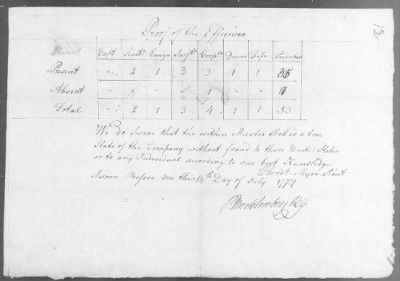 Proof of the Effectives
Capt Lieuts Ensign Sergts Corpls Drum Fife Privates
Present " 2 1 3 3 1 1
Absent
Total " 2 1 3 4 1 1 33
We do Swear that the within Muster Roll is a true
State of the Company without fraud to these United States
or to any Individual according to our best Knowledge
Christ Lieut
Sworn Before me this 16th Day of July 1778